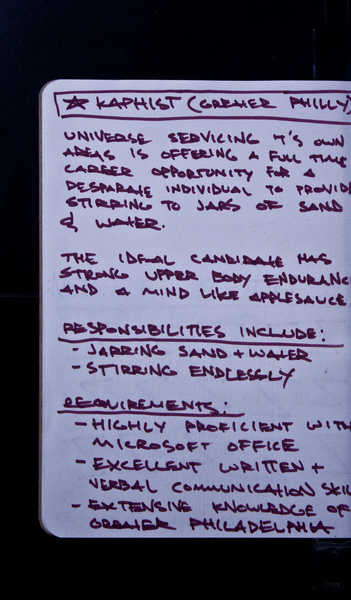 ☆ KAPHIST (GREATER PHILLY)
UNIVERSE SERVICING IT'S OWN
AREAS IS OFFERING A FULL TIME
CAREER OPPORTUNITY FOR A
DESPARATE INDIVIDUAL TO PROVID
STIRRING TO JARS OF SAND
& WATER.
THE IDEAL CANDIDATE HAS
STRONG UPPER BODY ENDURANC
AND A MIND LIKE APPLESAUCE
RESPONSIBILITIES INCLUDE:
- JARRING SAND + WATER
- STIRRING ENDLESSLY
REQUIREMENTS:
- HIGHLY PROFICIENT WITH
MICROSOFT OFFICE
- EXCELLENT WRITTEN +
VERBAL COMMUNICATION SKIL
- EXTENSIVE KNOWLEDGE OF
GREATER PHILADELPHIA